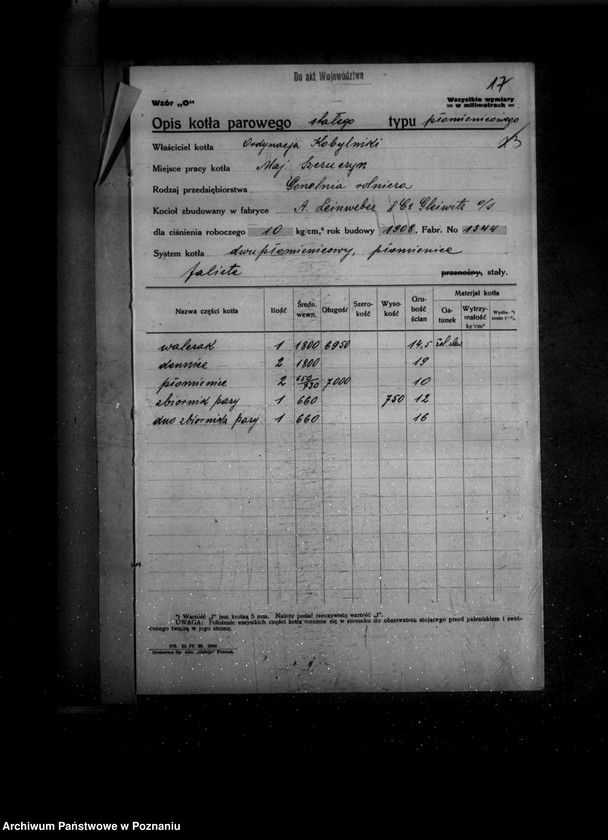 Do akt Województwa
17
Wzór „O“
Wszystkie wymiary
= w milimetrach =
Opis kotła parowego stałego typu płomienicowego
Właściciel kotła Ordynacja Kobylniki
Miejsce pracy kotła Maj.
Rodzaj przedsiębiorstwa Gorzelnia rolnicza
Kocioł zbudowany w fabryce A. Leinweber & Co Gleiwitz o/s
dla ciśnienia roboczego 10 kg/cm,² rok budowy 1908. Fabr. No 1344
System kotła dwupłomienicowy, płomienice
faliste przenośny, stały.
Nazwa części kotła Ilość Średn. wewn. Długość Szerokość Wysokość Grubość ścian Materjał kotła
Gatunek Wytrzymałość kg/cm²
walczak 1 1800 6950 14,5
dennice 2 1800 19
płomienice 2 650/730 7000 10
zbiornik pary 1 660 750 12
dno zbiornika pary 1 660 16
*) Wartość „l“ jest krotną 5 mm. Należy podać rzeczywistą wartość „l“.
UWAGA: Położenie wszystkich części kotła rozumie się w stosunku do obserwatora stojącego przed paleniskiem i zwróconego twarzą w jego stronę.
Archiwum Państwowe w Poznaniu